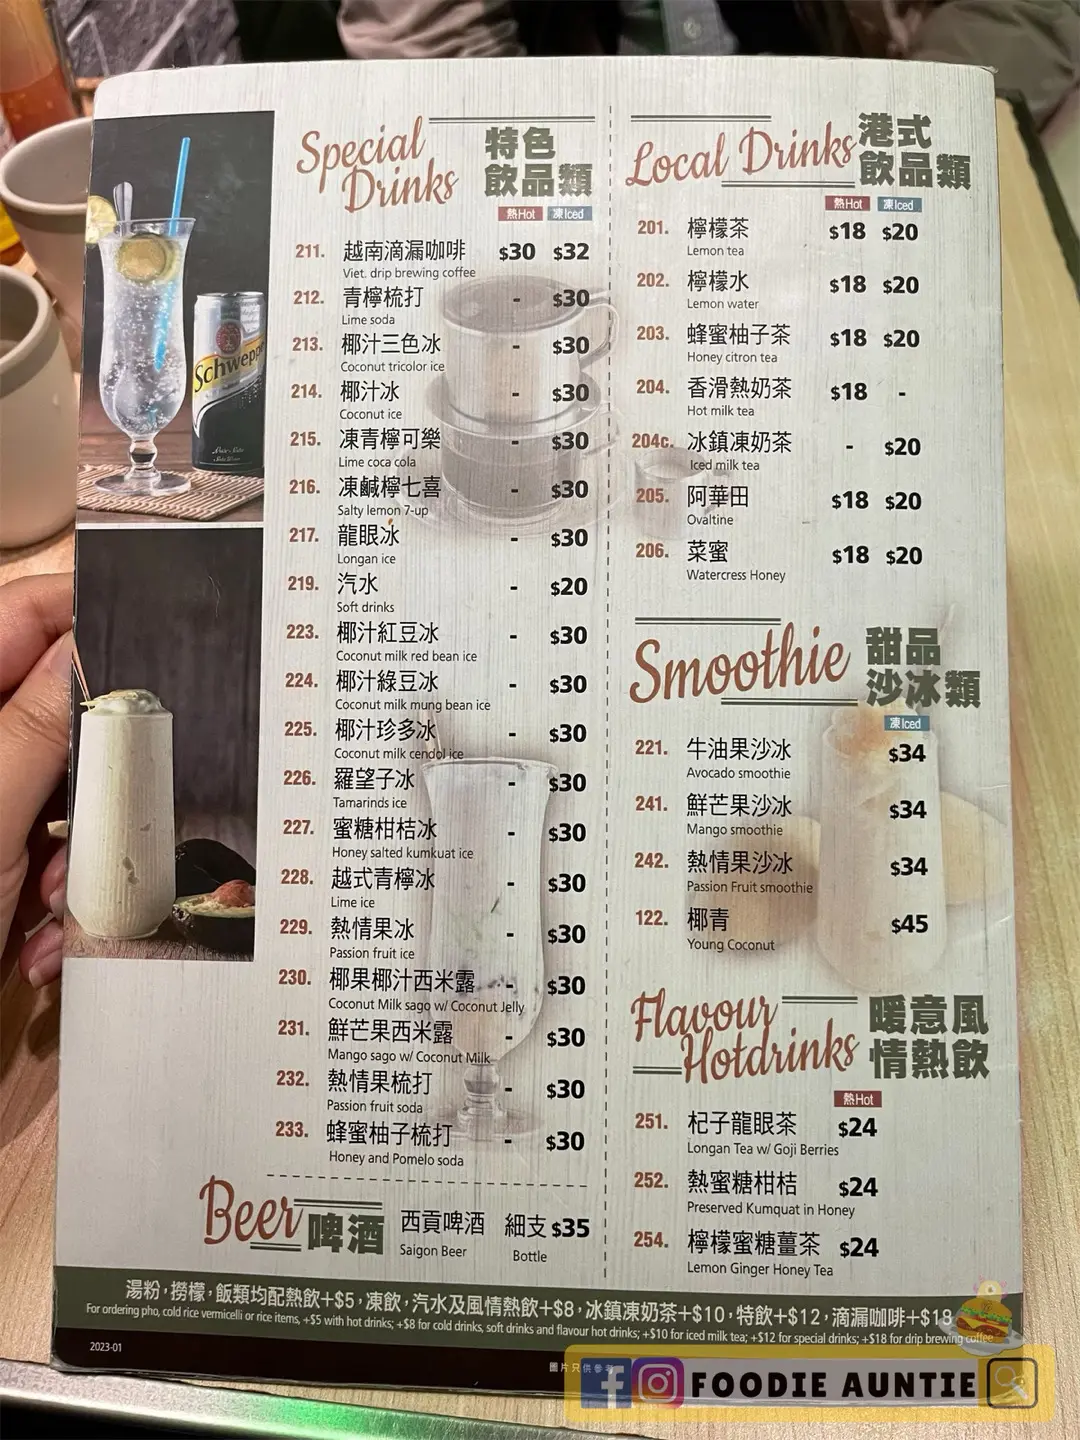 Special Drinks 特色飲品類
熱Hot 凍Iced
211. 越南滴漏咖啡 $30 $32
Viet. drip brewing coffee
212. 青檸梳打 - $30
Lime soda
213. 椰汁三色冰 - $30
Coconut tricolor ice
214. 椰汁冰 - $30
Coconut ice
215. 凍青檸可樂 - $30
Lime coca cola
216. 凍鹹檸七喜 - $30
Salty lemon 7-up
217. 龍眼冰 - $30
Longan ice
219. 汽水 - $20
Soft drinks
223. 椰汁紅豆冰 - $30
Coconut milk red bean ice
224. 椰汁綠豆冰 - $30
Coconut milk mung bean ice
225. 椰汁珍多冰 - $30
Coconut milk cendol ice
226. 羅望子冰 - $30
Tamarinds ice
227. 蜜糖柑桔冰 - $30
Honey salted kumkuat ice
228. 越式青檸冰 - $30
Lime ice
229. 熱情果冰 - $30
Passion fruit ice
230. 椰果椰汁西米露 - $30
Coconut Milk sago w/ Coconut Jelly
231. 鮮芒果西米露 - $30
Mango sago w/ Coconut Milk
232. 熱情果梳打 - $30
Passion fruit soda
233. 蜂蜜柚子梳打 - $30
Honey and Pomelo soda
Beer 啤酒 西貢啤酒 細支 $35
Saigon Beer Bottle
Local Drinks 港式飲品類
熱Hot 凍Iced
201. 檸檬茶 $18 $20
Lemon tea
202. 檸檬水 $18 $20
Lemon water
203. 蜂蜜柚子茶 $18 $20
Honey citron tea
204. 香滑熱奶茶 $18 -
Hot milk tea
204c. 冰鎮凍奶茶 - $20
Iced milk tea
205. 阿華田 $18 $20
Ovaltine
206. 菜蜜 $18 $20
Watercress Honey
Smoothie 甜品沙冰類
凍Iced
221. 牛油果沙冰 $34
Avocado smoothie
241. 鮮芒果沙冰 $34
Mango smoothie
242. 熱情果沙冰 $34
Passion Fruit smoothie
122. 椰青 $45
Young Coconut
Flavour Hotdrinks 暖意風情熱飲
熱Hot
251. 杞子龍眼茶 $24
Longan Tea w/ Goji Berries
252. 熱蜜糖柑桔 $24
Preserved Kumquat in Honey
254. 檸檬蜜糖薑茶 $24
Lemon Ginger Honey Tea
湯粉，撈檬，飯類均配熱飲+$5，凍飲，汽水及風情熱飲+$8，冰鎮凍奶茶+$10，特飲+$12，滴漏咖啡+$18
For ordering pho, cold rice vermicelli or rice items, +$5 with hot drinks; +$8 for cold drinks, soft drinks and flavour hot drinks; +$10 for iced milk tea; +$12 for special drinks; +$18 for drip brewing coffee
2023-01
圖片只供參考
Schweppe
FOODIE AUNTIE